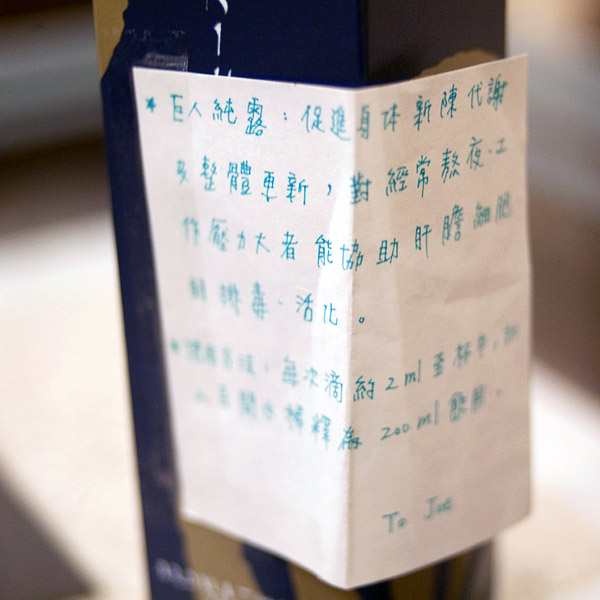 * 巨人純露：促進身体新陳代謝
及整體更新，對經常熬夜、工
作壓力大者能協助肝膽細胞
排毒、活化。
每次滴約2ml至杯中，
開水稀釋為200ml飲用。
To Joe